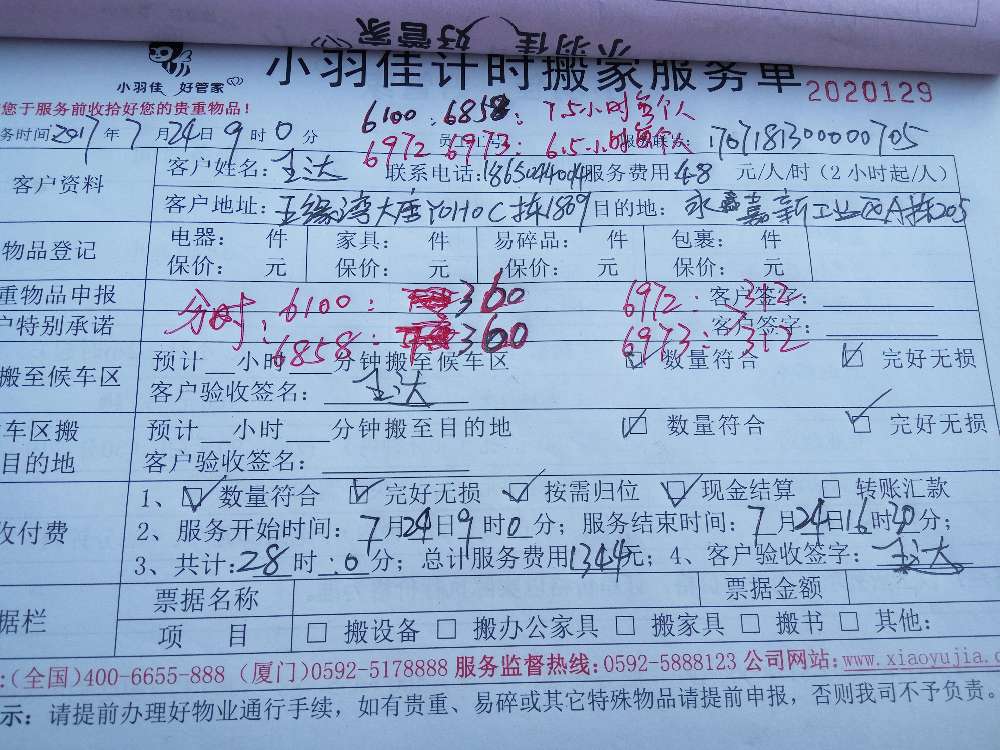 小羽佳 好管家
小羽佳 好管家
小羽佳计时搬家服务单
2020129
您于服务前收拾好您的贵重物品!
6100 : 6858 : 7.5小时每个人
务时间2017年7月24日9时0分
6972 6973 : 6.5小时每个人
170718130000705
客户资料
客户姓名:王达 联系电话:18650440 服务费用48元/人/时(2小时起/人)
客户地址:五缘湾大唐YOHO C栋1809 目的地:永嘉新工业区A栋205
物品登记
电器: 件 家具: 件 易碎品: 件 包裹: 件
保价: 元 保价: 元 保价: 元 保价: 元
重物品申报
客户签字:
分时: 6100: 360 6972: 312
户特别承诺
客户签字:
6858: 360 6973: 312
搬至候车区
预计 小时 分钟搬至候车区 ☑ 数量符合 ☑ 完好无损
客户验收签名: 王达
车区搬
目的地
预计 小时 分钟搬至目的地 ☑ 数量符合 ☑ 完好无损
客户验收签名:
收付费
1、☑ 数量符合 ☑ 完好无损 ☑ 按需归位 ☑ 现金结算 □ 转账汇款
2、服务开始时间:7月24日9时0分;服务结束时间:7月24日16时30分;
3、共计:28时:0分;总计服务费用1344元;4、客户验收签字:王达
据栏
票据名称 票据金额
项 目 □ 搬设备 □ 搬办公家具 □ 搬家具 □ 搬书 □ 其他:
:(全国)400-6655-888 (厦门)0592-5178888 服务监督热线:0592-5888123 公司网站:www.xiaoyujia.c
示:请提前办理好物业通行手续,如有贵重、易碎或其它特殊物品请提前申报,否则我司不予负责。